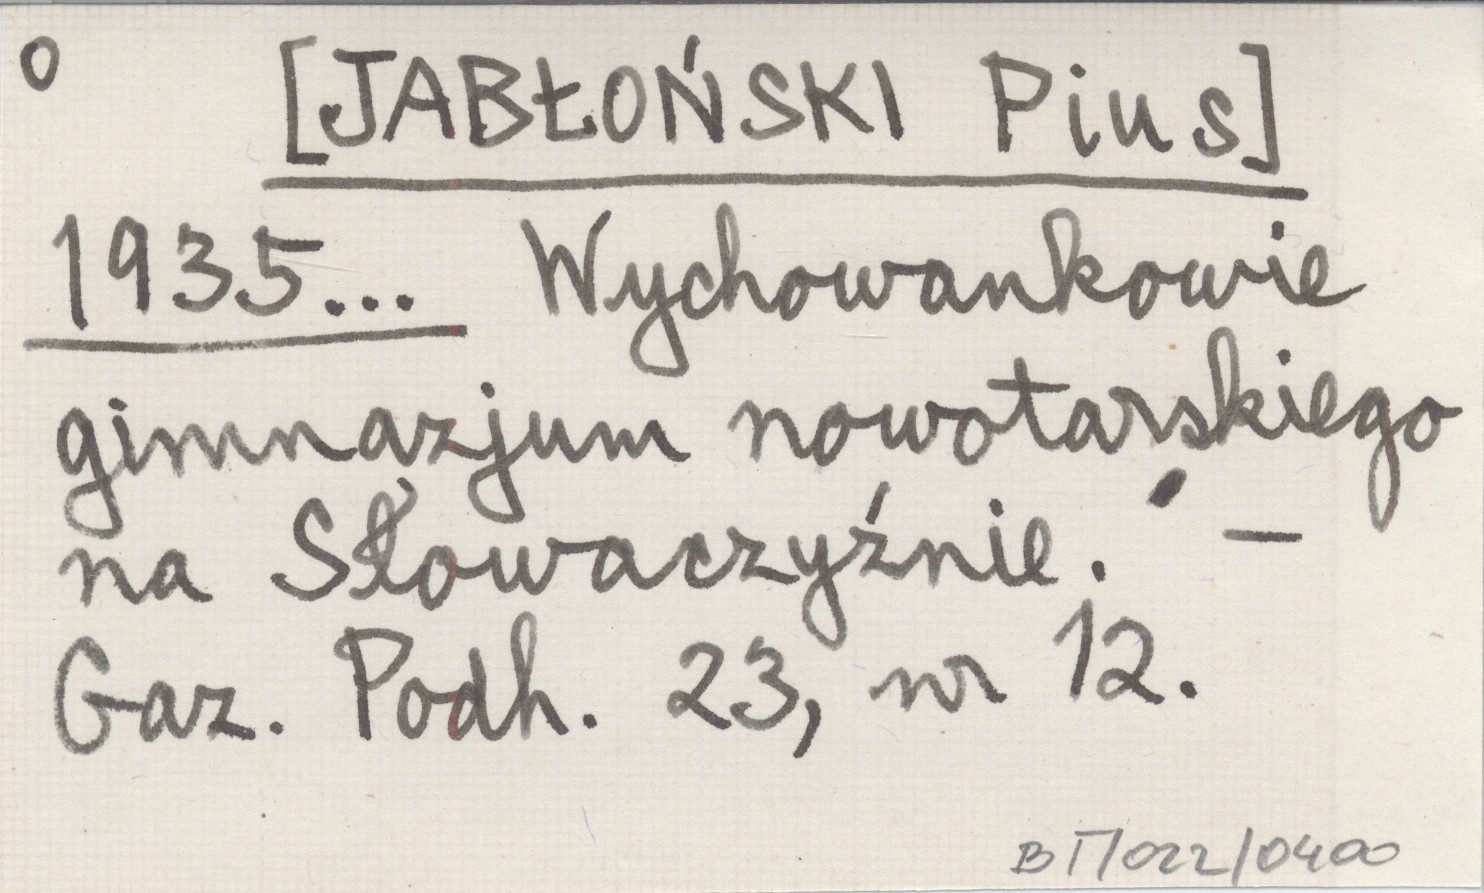 o
[JABŁOŃSKI Pius]
1935... Wychowankowie
gimnazjum nowotarskiego
na Słowaczyźnie. –
Gaz. Podh. 23, nr 12.
BT/022/0400